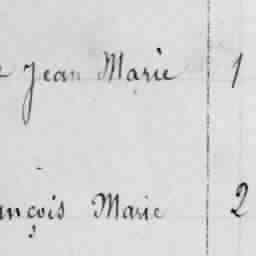 Jean Marie 1
ançois Marie 2